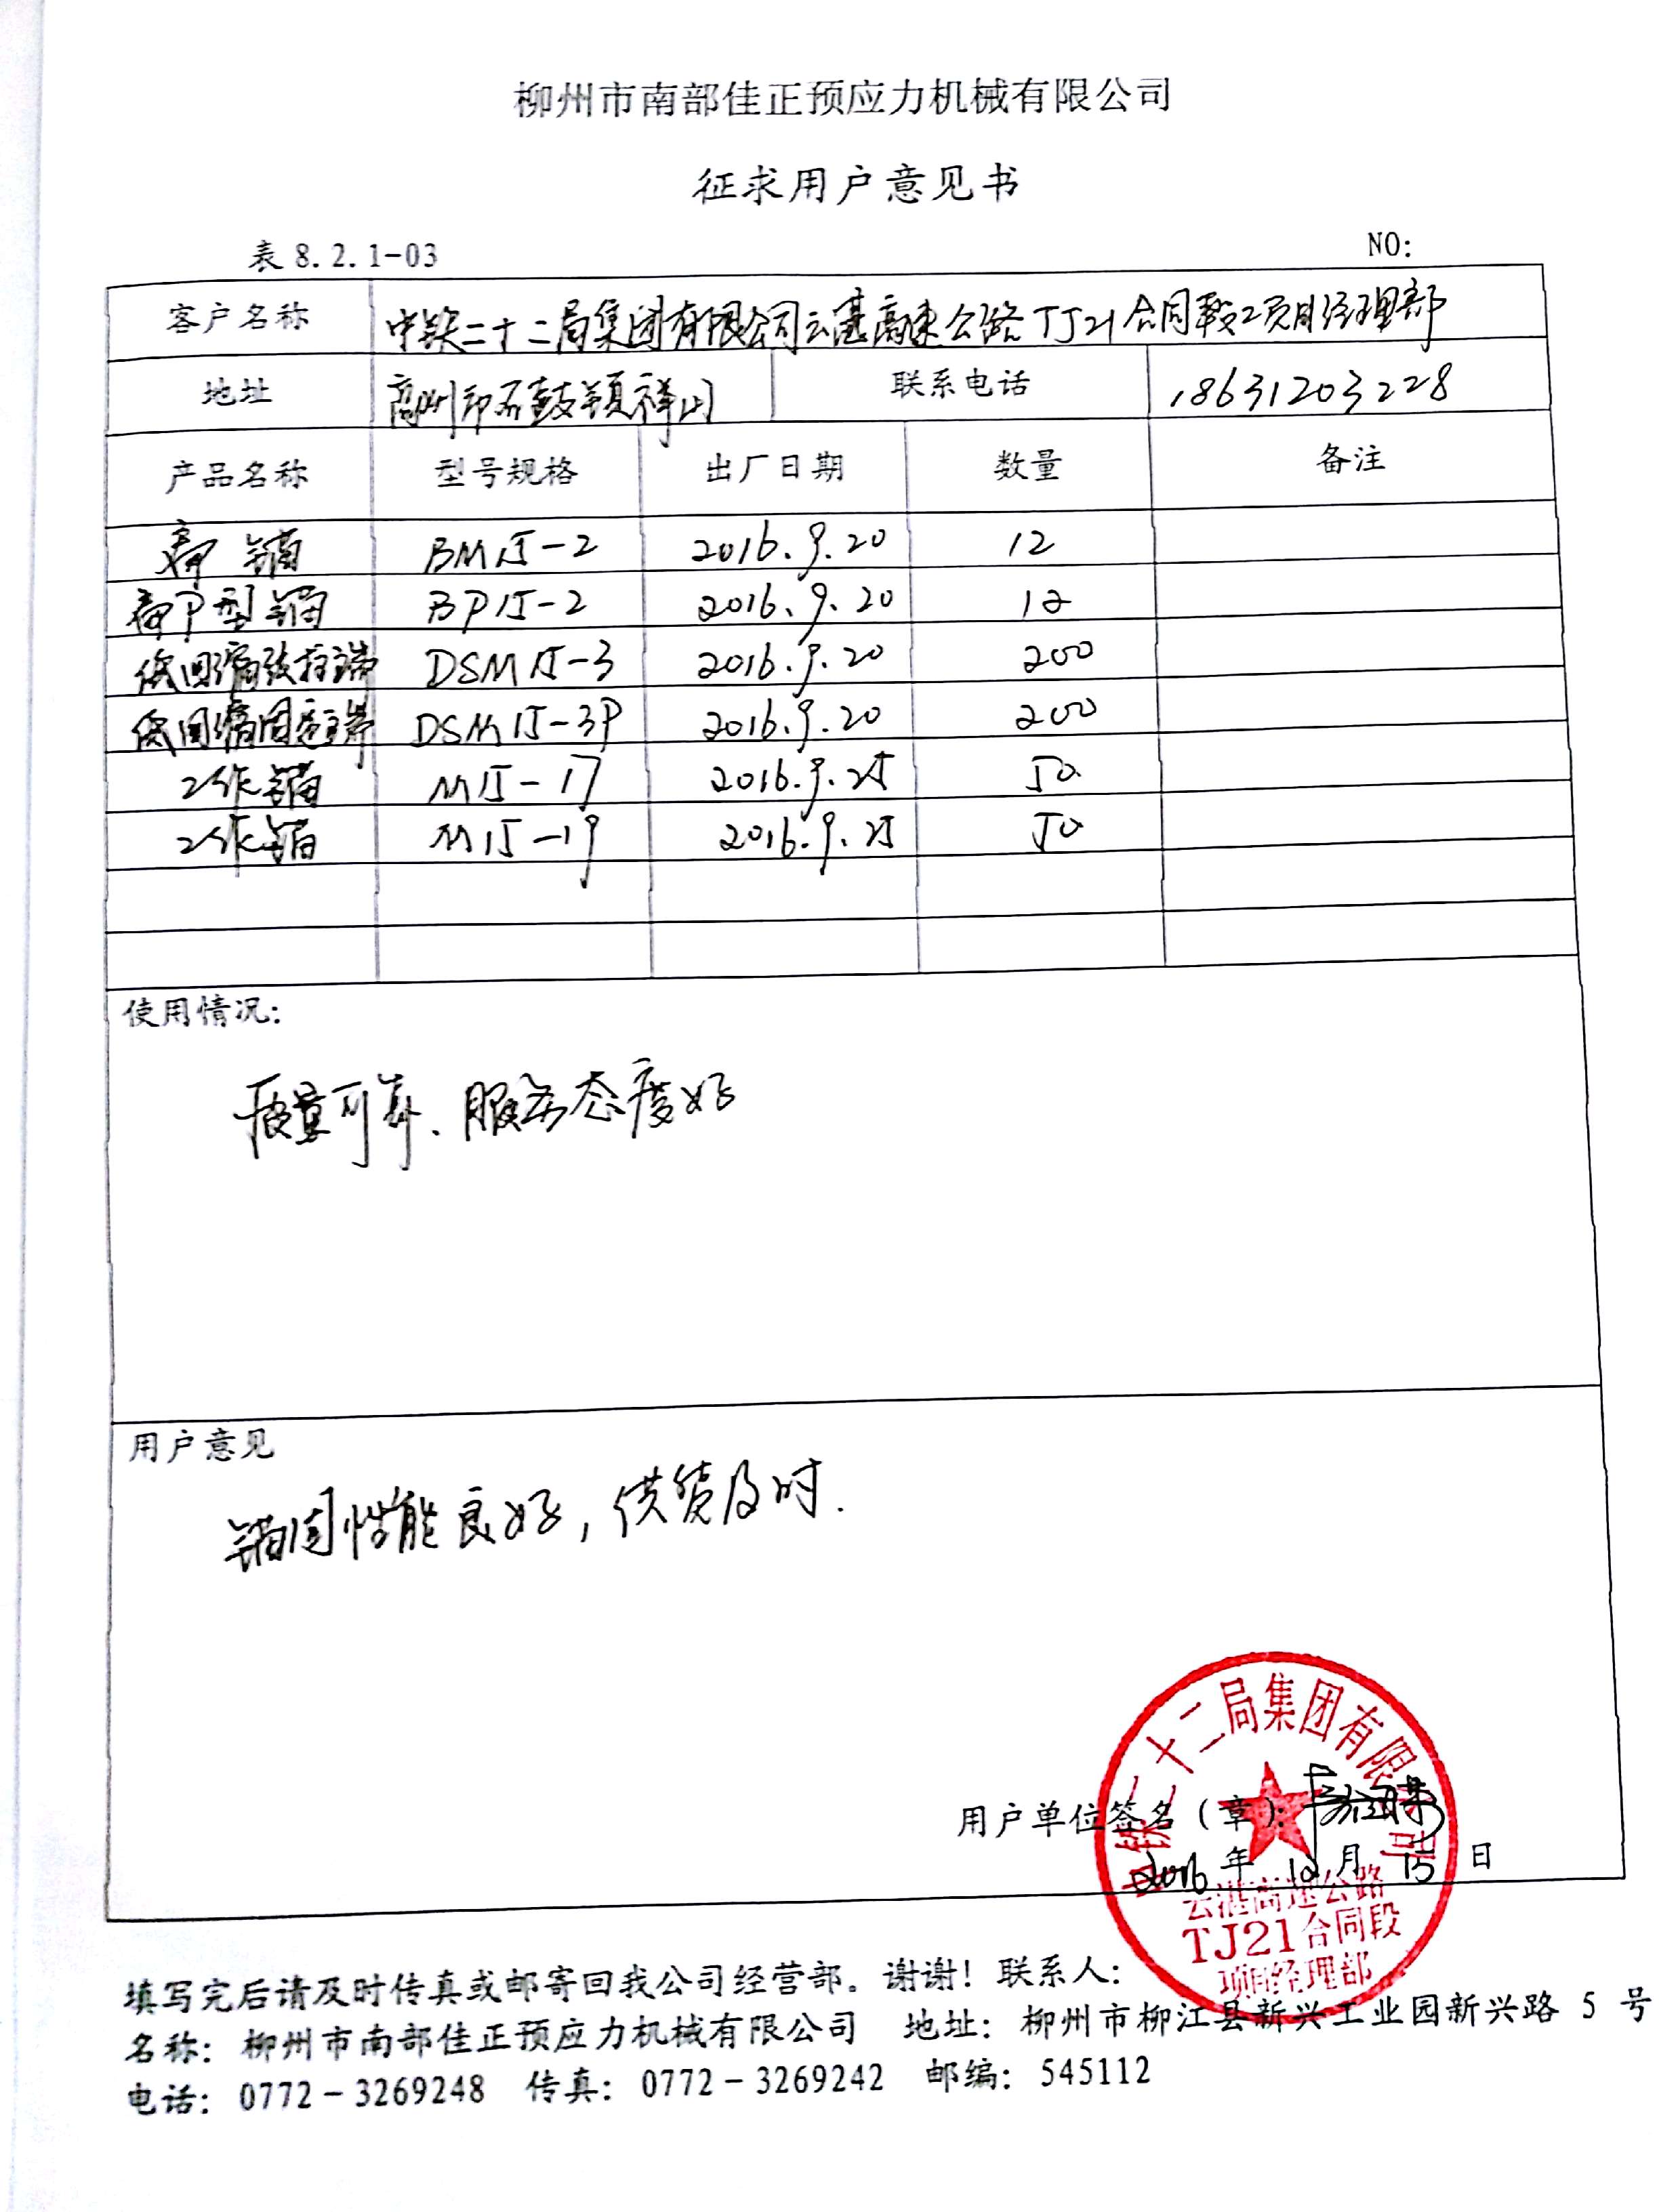 柳州市南部佳正预应力机械有限公司
征求用户意见书
表 8.2.1-03 NO:
客户名称 中铁二十二局集团有限公司云湛高速公路TJ21合同段项目经理部
地址 高州市石鼓镇祥山 联系电话 18631203228
产品名称 型号规格 出厂日期 数量 备注
扁锚 BM15-2 2016.9.20 12
扁P型锚 BP15-2 2016.9.20 12
低回缩张拉端 DSM15-3 2016.9.20 200
低回缩固定端 DSM15-3P 2016.9.20 200
工作锚 M15-17 2016.9.25 50
工作锚 M15-19 2016.9.25 50
使用情况:
质量可靠、服务态度好
用户意见
锚固性能良好,供货及时.
中铁二十二局集团有限公司
用户单位签名(章):
2016 年 10 月 15 日
云湛高速公路
TJ21合同段
项目经理部
填写完后请及时传真或邮寄回我公司经营部。谢谢!联系人:
名称:柳州市南部佳正预应力机械有限公司 地址:柳州市柳江县新兴工业园新兴路 5 号
电话:0772-3269248 传真:0772-3269242 邮编:545112